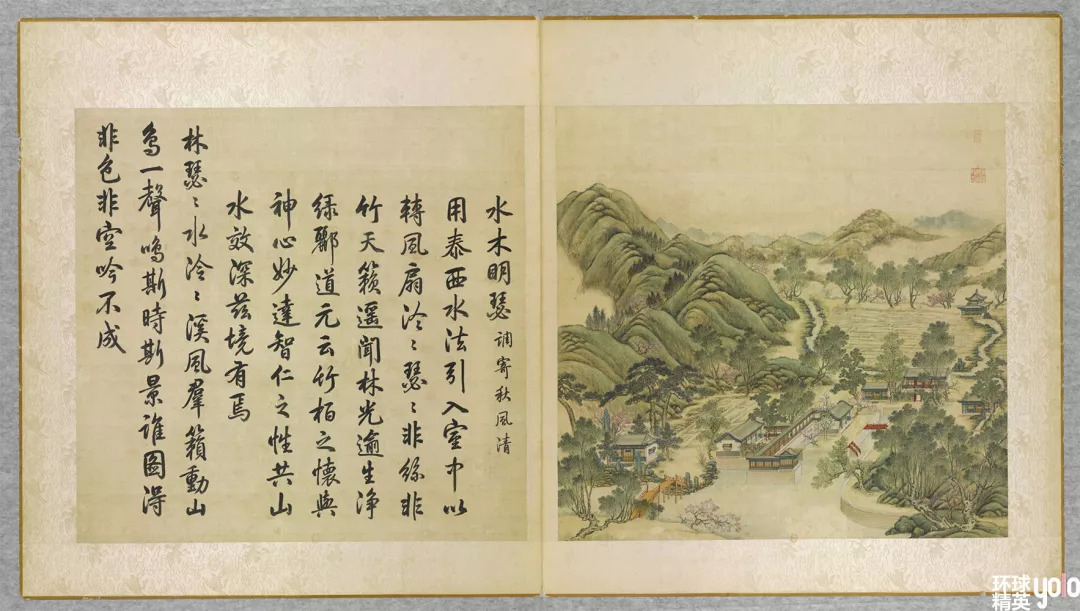 水木明瑟 調寄秋風清
用泰西水法引入室中以
轉風扇泠〻瑟〻非絲非
竹天籟遥聞林光逾生净
緑酈道元云竹柏之懷與
神心妙達智仁之性共山
水效深兹境有焉
林瑟〻水泠〻溪風羣籟動山
鳥一聲鳴斯時斯景誰圖得
非色非空吟不成
环球
精英
yolo